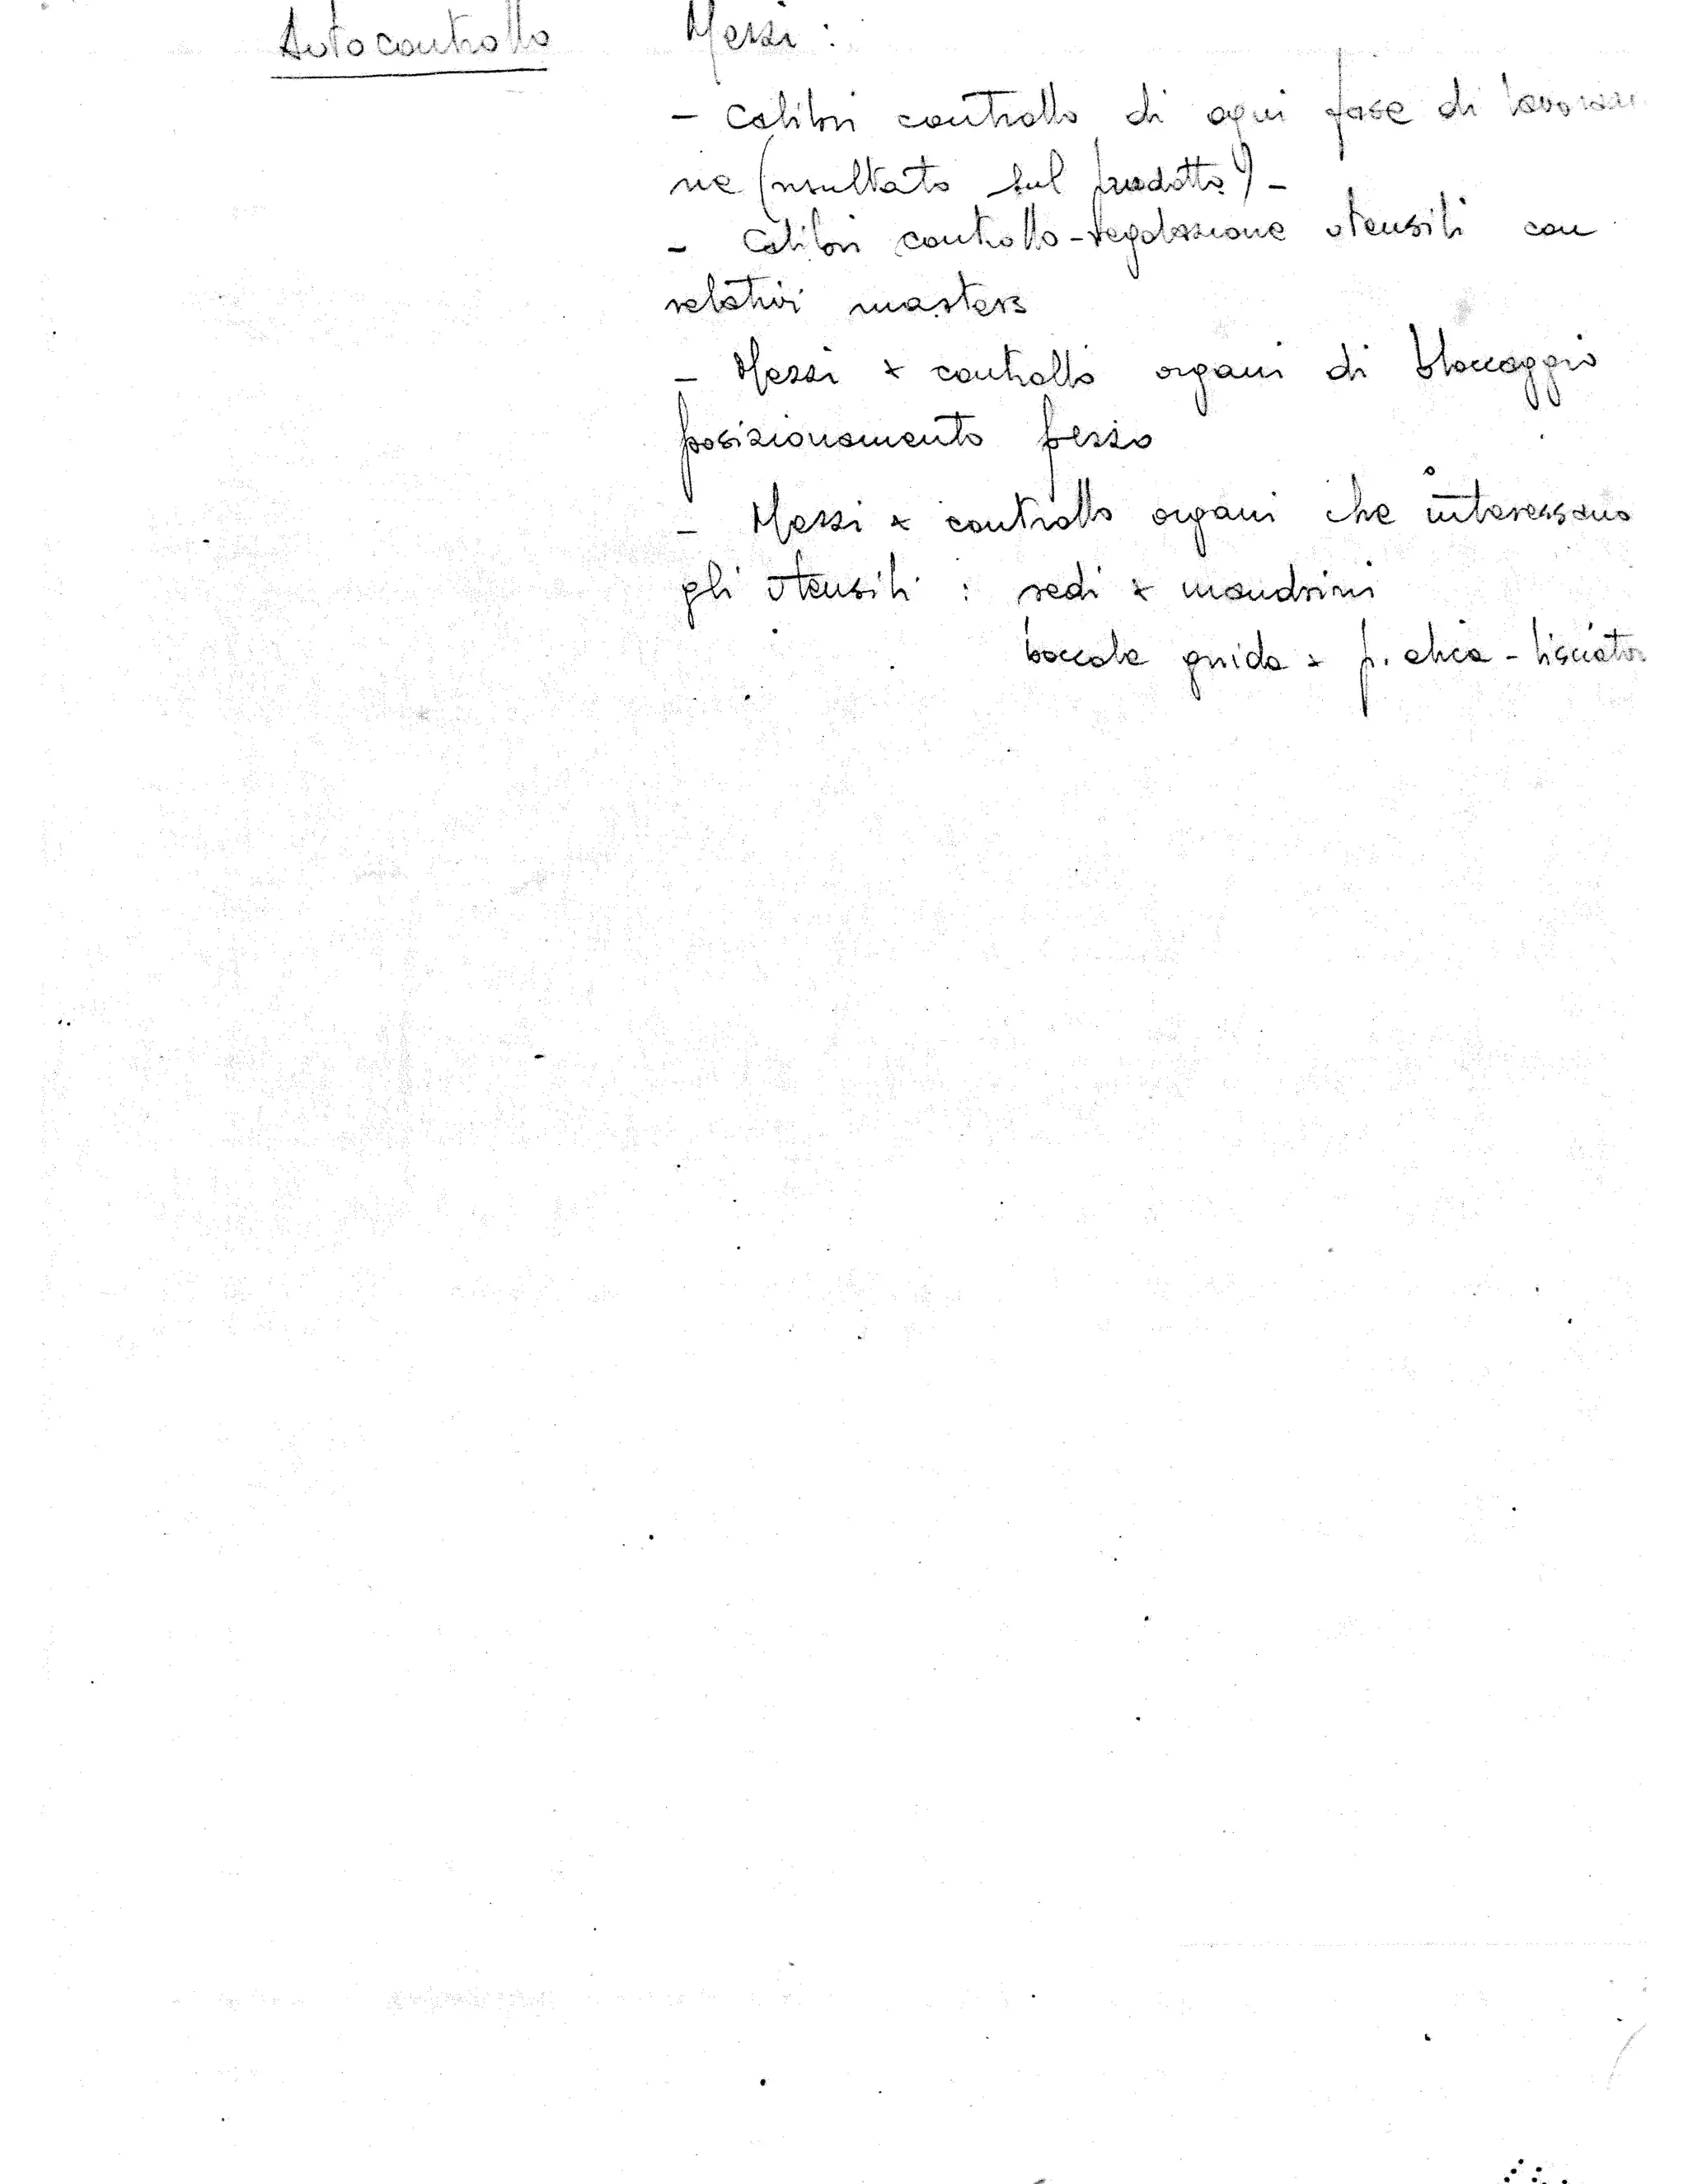 Autocontrollo Mezzi :
- Calibri controllo di ogni fase di lavorazio
ne (risultato sul prodotto) -
- Calibri controllo-regolazione utensili con
relativi masters
- Mezzi x controllo organi di bloccaggio
posizionamento pezzo
- Mezzi x controllo organi che interessano
gli utensili : sedi x mandrini
boccole guida x p. elica - lisciatori